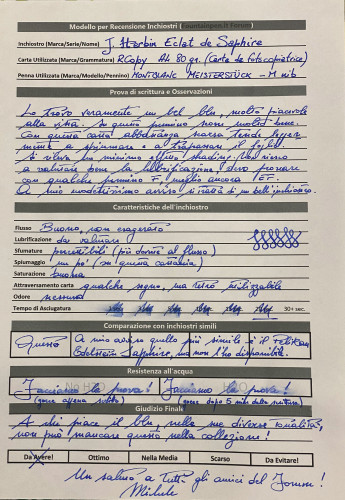 Modello per Recensione Inchiostri (Fountainpen.it Forum)
Inchiostro (Marca/Serie/Nome) J. Herbin Eclat de Saphire
Carta Utilizzata (Marca/Grammatura) RCopy A4 80 gr. (Carta da fotocopiatrice)
Penna Utilizzata (Marca/Modello/Pennino) MONTBLANC MEISTERSTÜCK - M nib
Prova di scrittura e Osservazioni
Lo trovo veramente un bel blu, molto piacevole
alla vista. Su questo pennino non molto bene.
Con questa carta abbastanza scarsa tende legger
mente a spiumare e al trapassare il foglio.
Si rileva un minimo effetto shading. Non riesco
a valutare bene la lubrificazione; devo provare
con qualche pennino F, meglio ancora EF.
A mio modestissimo avviso si tratta di un bell'inchiostro.
Caratteristiche dell'inchiostro
Flusso Buono, non esagerato
Lubrificazione da valutare
Sfumature percettibili (più dovute al flusso)
Spiumaggio un po' (su questa cartaccia)
Saturazione buona
Attraversamento carta qualche segno, ma retro utilizzabile
Odore nessuno
Tempo di Asciugatura 30+ sec.
Comparazione con inchiostri simili
Questo A mio avviso quello più simile è il Pelikan
Edelstein Sapphire, ma non l'ho disponibile.
Resistenza all'acqua
Facciamo la prova! Facciamo la prova!
(goccia appena scritto) (goccia dopo 5 min. dalla scrittura)
Giudizio Finale
A chi piace il blu, nelle sue diverse tonalità,
non può mancare questo nella collezione!
Da Avere! Ottimo Nella Media Scarso Da Evitare!
Un saluto a tutti gli amici del Forum!
Michele